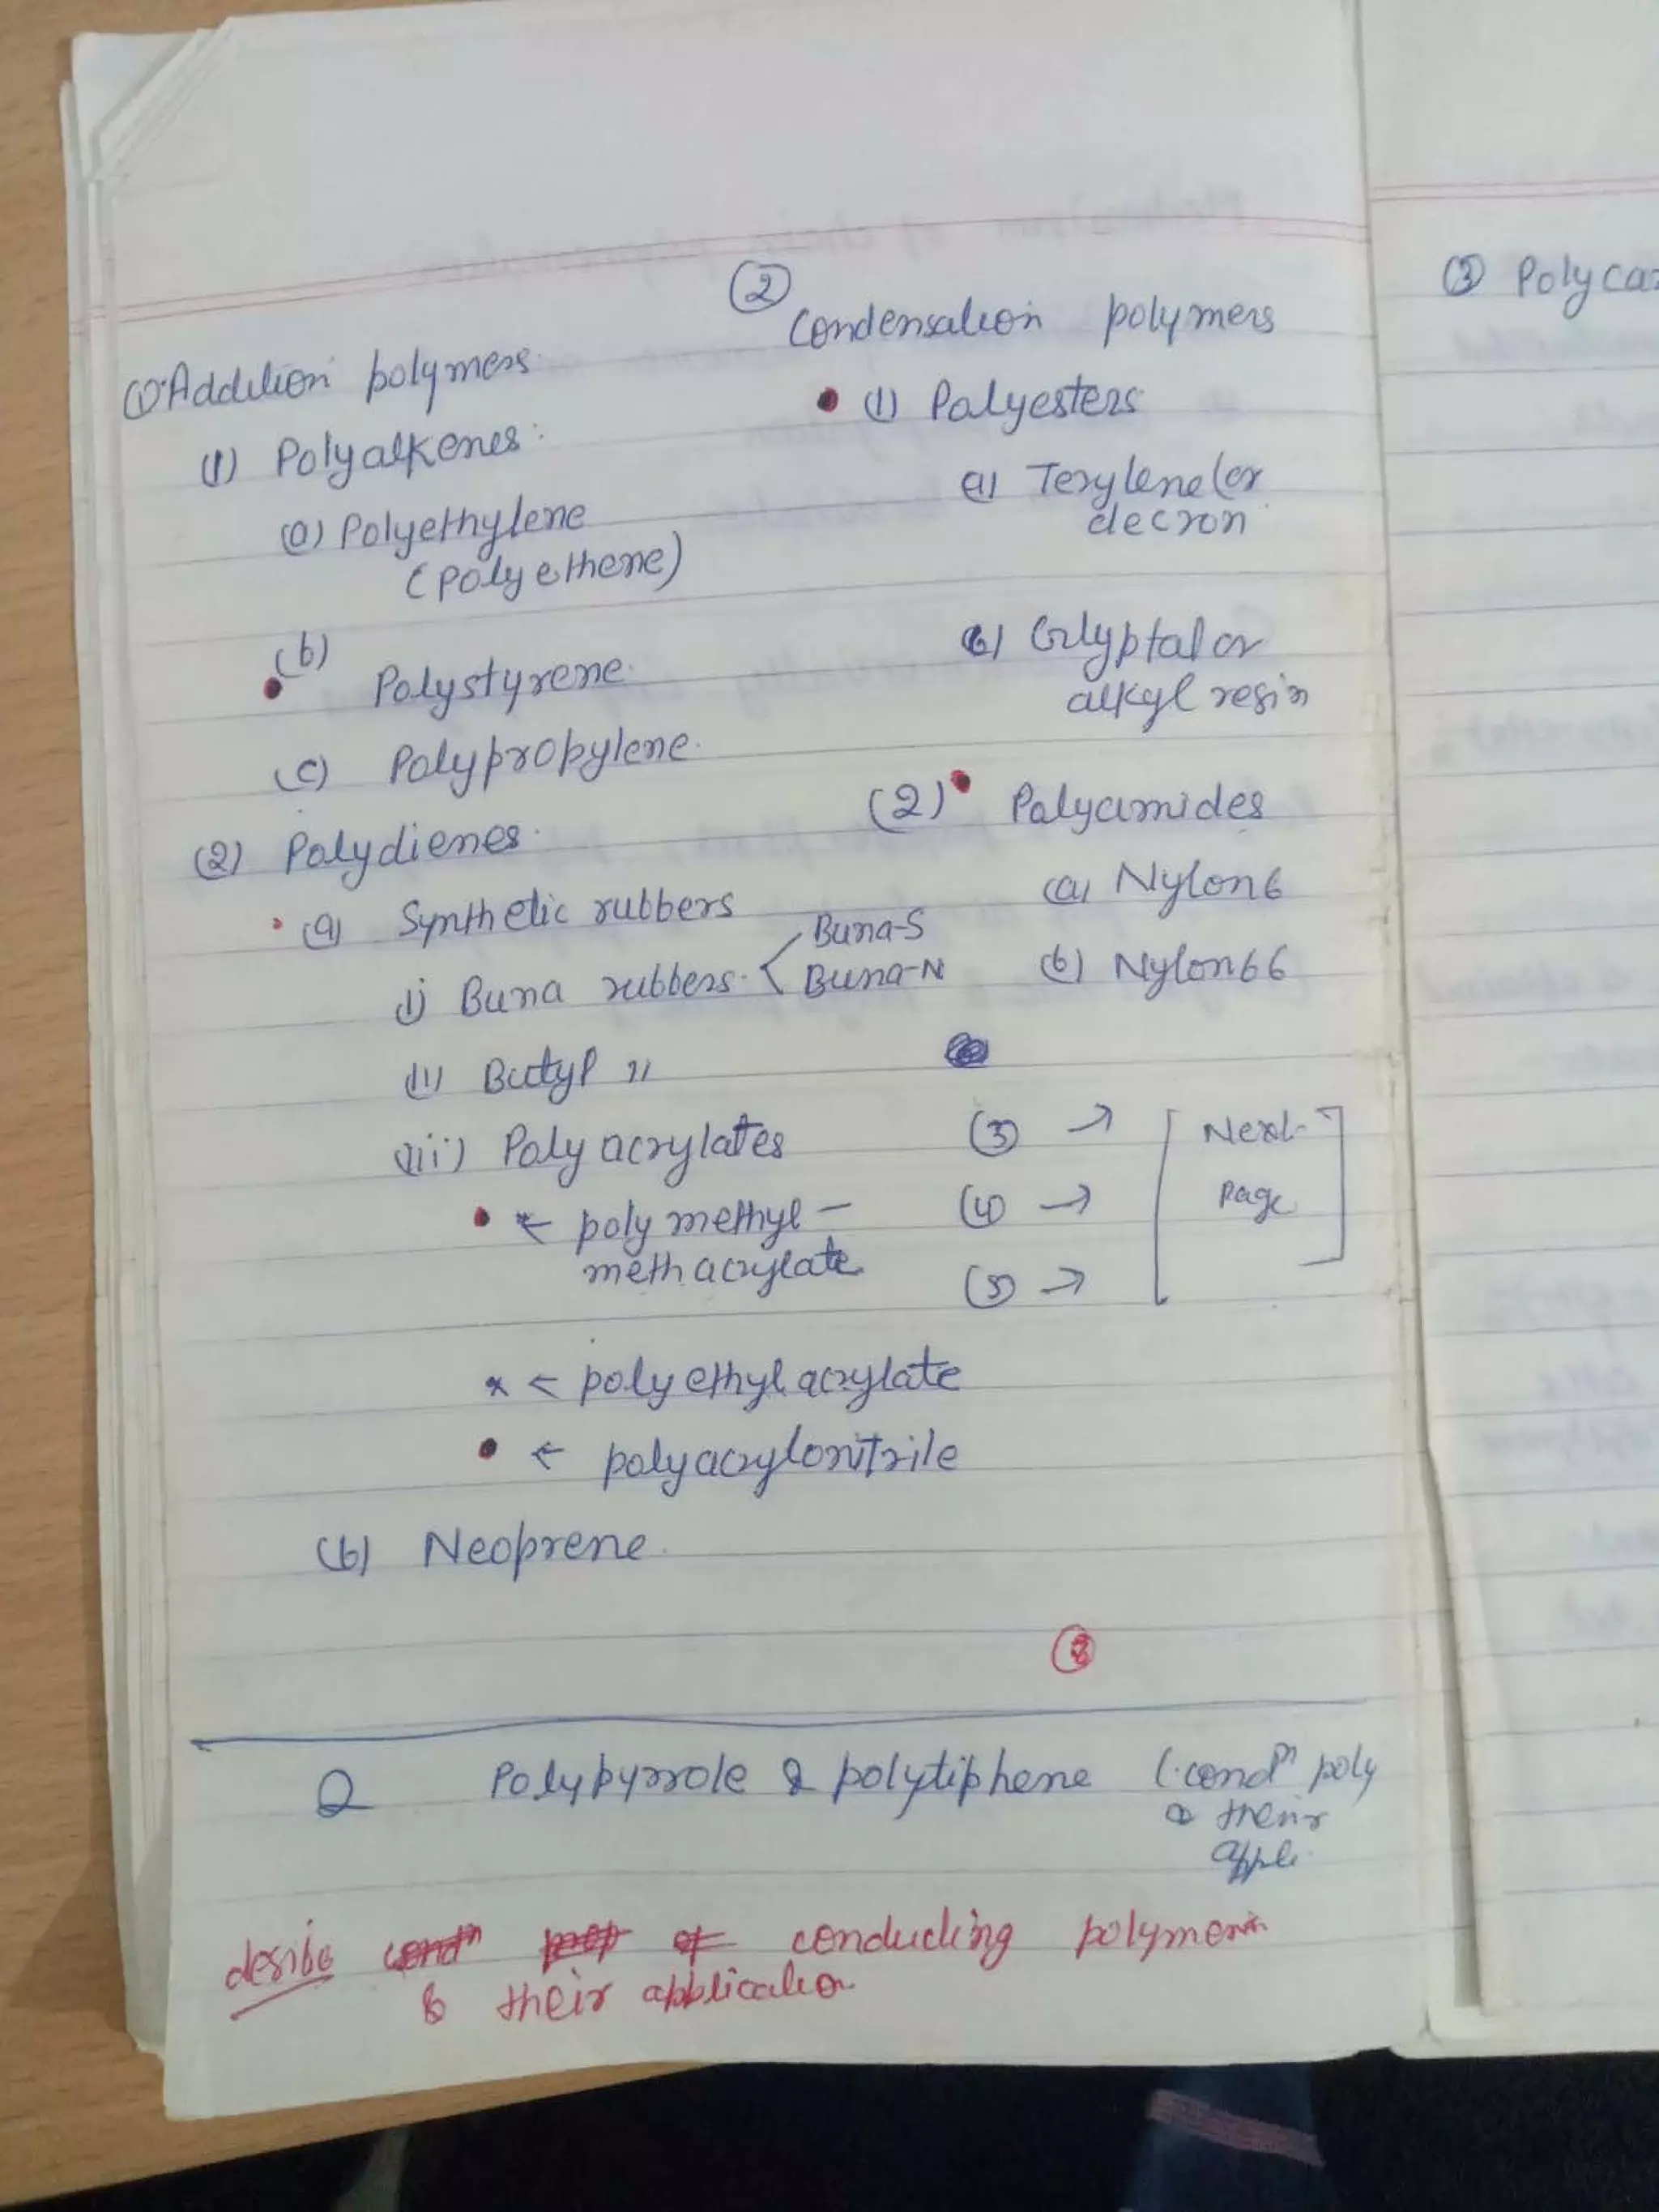 ① Addition polymers
(1) Polyalkenes:
(a) Polyethylene
(Polyethene)
(b)
Polystyrene
(c) Polypropylene
(2) Polydienes
(a) Synthetic rubbers
i) Buna rubbers
Buna-S
Buna-N
ii) Butyl "
iii) Poly acrylates
* ← poly methyl -
methacrylate
* ← poly ethyl acrylate
← polyacrylonitrile
(b) Neoprene
②
Condensation polymers
(1) Polyesters
a) Terylene (or
decron
b) Glyptal or
alkyl resin
(2) Polyamides
(a) Nylon6
(b) Nylon66
(3) →
(4) →
(5) →
[ Next
Page ]
Q Polypyrrole & polytiphene (condⁿ poly
& their
appli.
desribe condⁿ prop of conducting polymers
& their application
③ Polycar